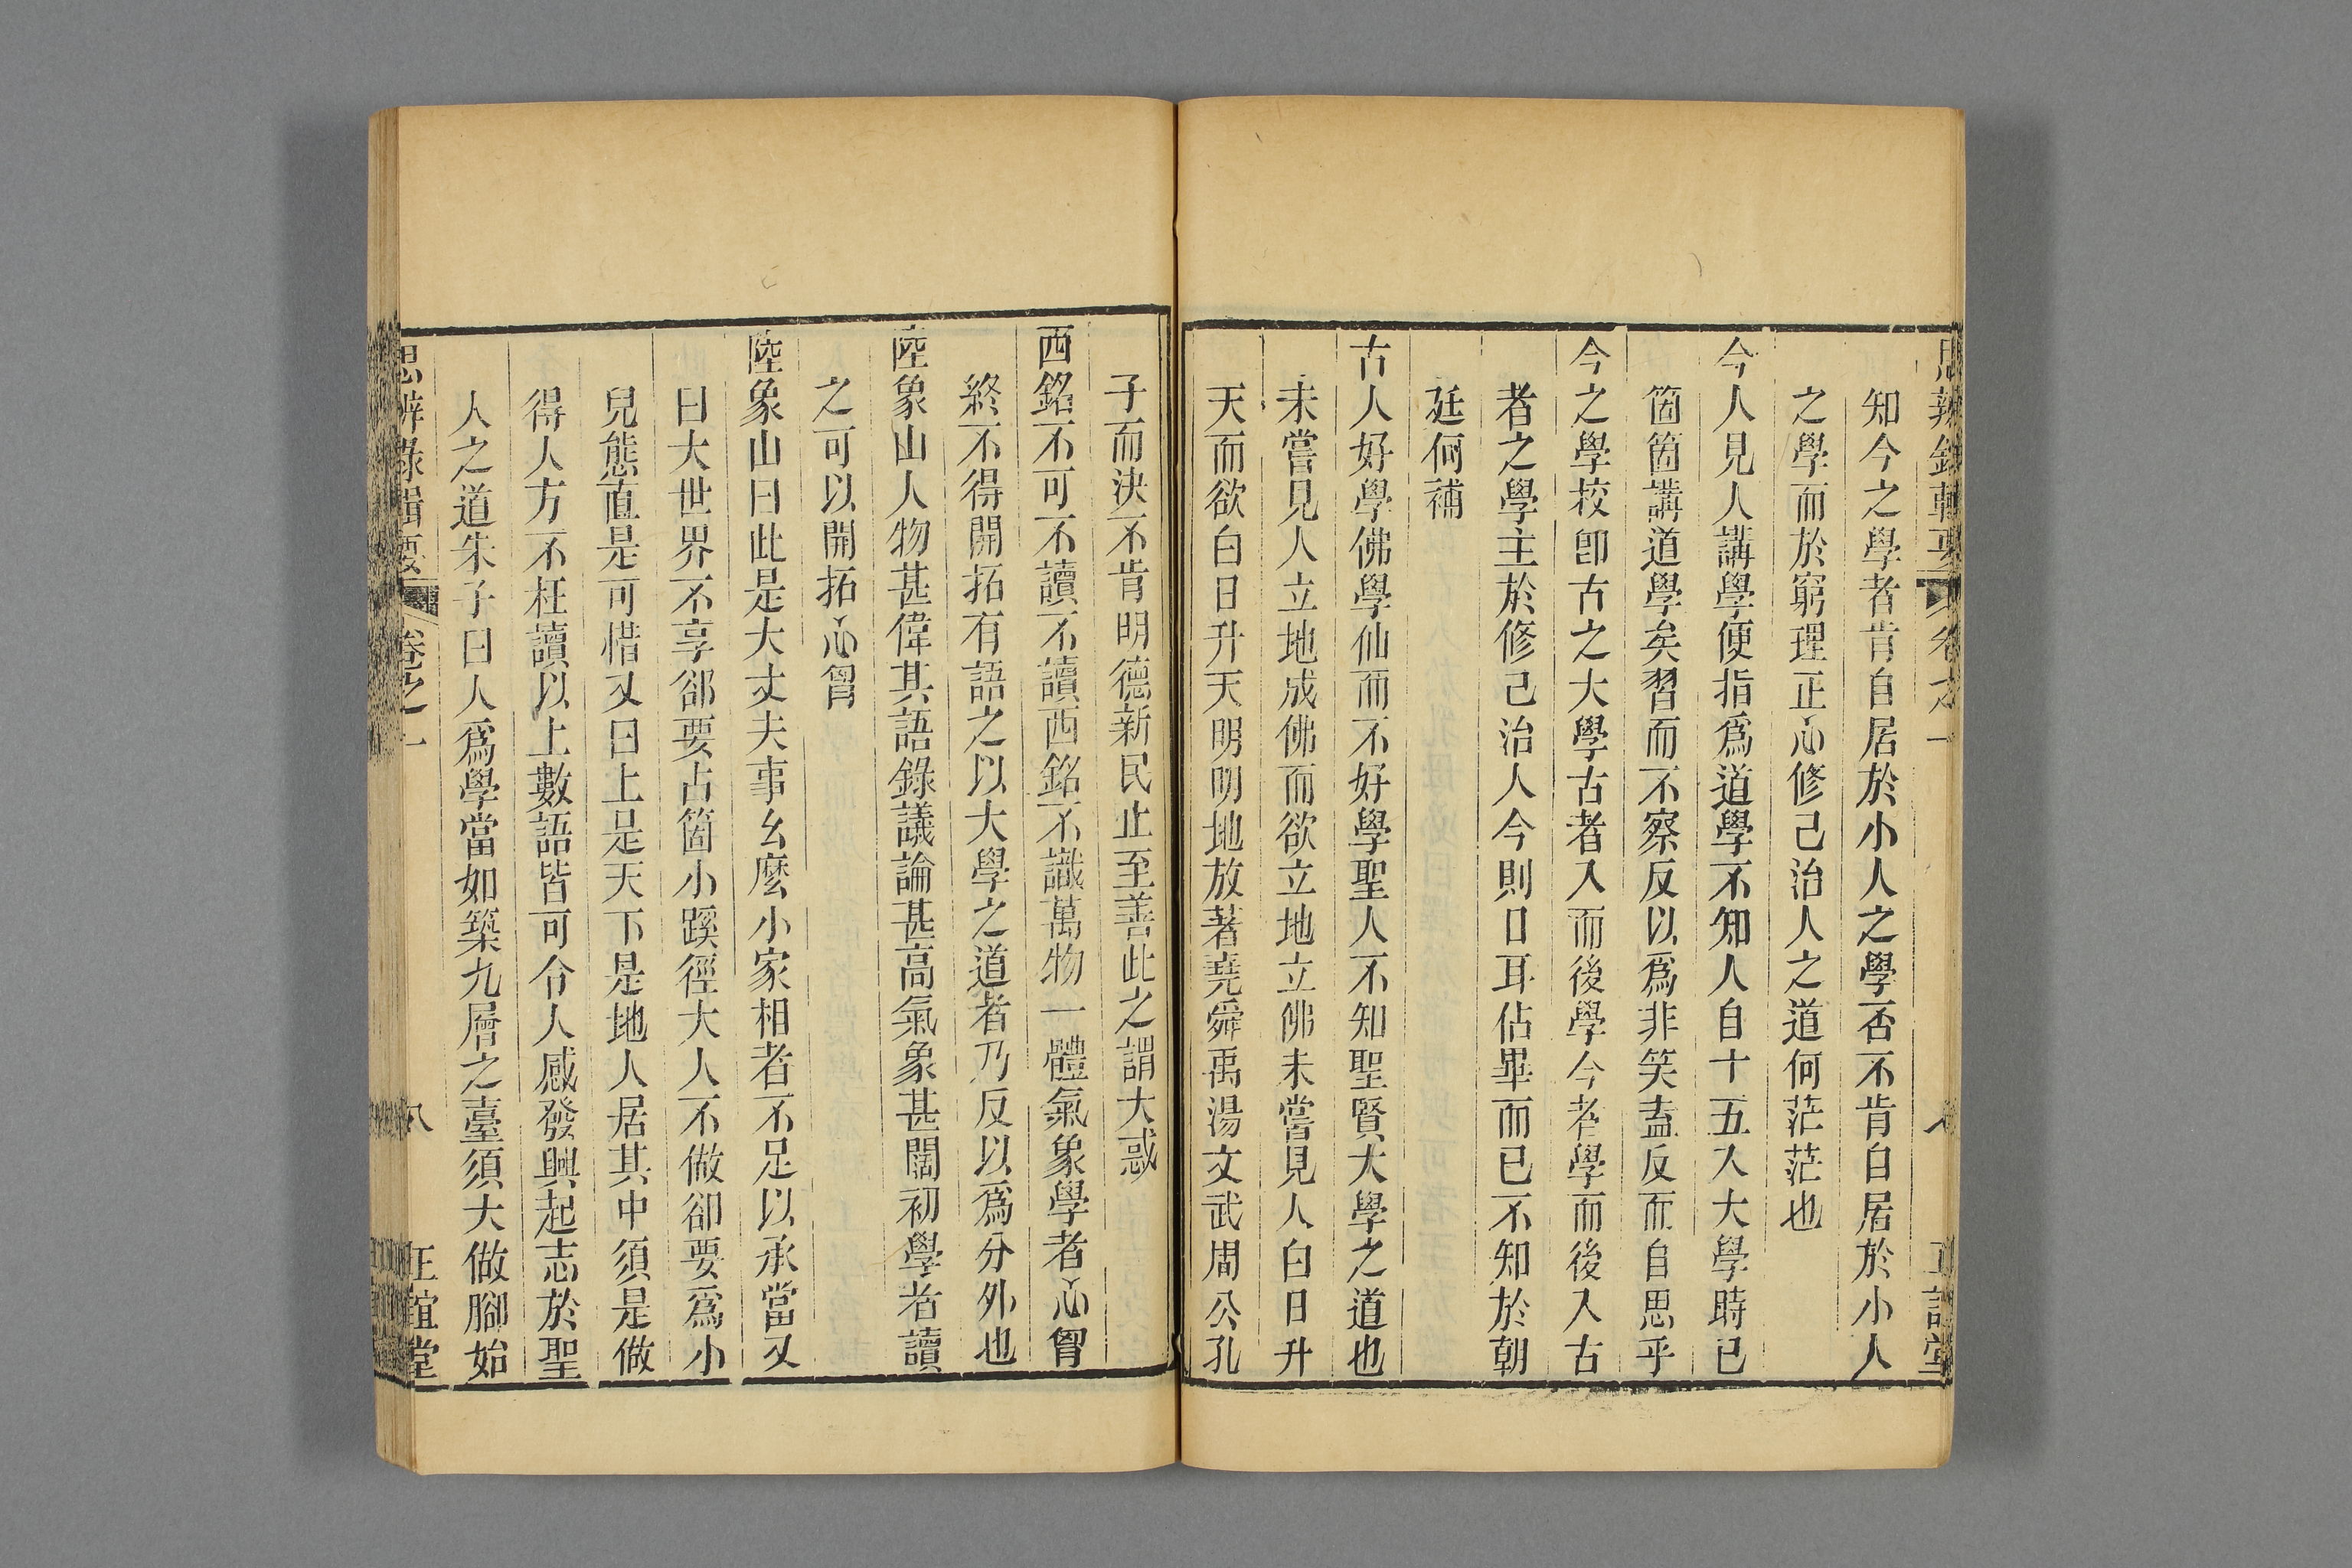 知今之學者肯自居於小人之學否不肯自居於小人
之學而於窮理正心修己治人之道何茫茫也
今人見人講學便指爲道學不知人自十五入大學時已
箇箇講道學矣習而不察反以爲非笑盍反而自思乎
今之學校卽古之大學古者入而後學今者學而後入古
者之學主於修己治人今則口耳佔畢而已不知於朝
廷何補
古人好學佛學仙而不好學聖人不知聖賢大學之道也
未嘗見人立地成佛而欲立地立佛未嘗見人白日升
天而欲白日升天明明地放著堯舜禹湯文武周公孔
子而決不肯明德新民止至善此之謂大惑
西銘不可不讀不讀西銘不識萬物一體氣象學者心胷
終不得開拓有語之以大學之道者乃反以爲分外也
陸象山人物甚偉其語錄議論甚高氣象甚闊初學者讀
之可以開拓心胷
陸象山曰此是大丈夫事幺麼小家相者不足以承當又
曰大世界不享卻要占箇小蹊徑大人不做卻要爲小
兒態直是可惜又曰上是天下是地人居其中須是做
得人方不枉讀以上數語皆可令人感發興起志於聖
人之道朱子曰人爲學當如築九層之臺須大做腳始
思辨錄輯要 卷之一 八 正誼堂